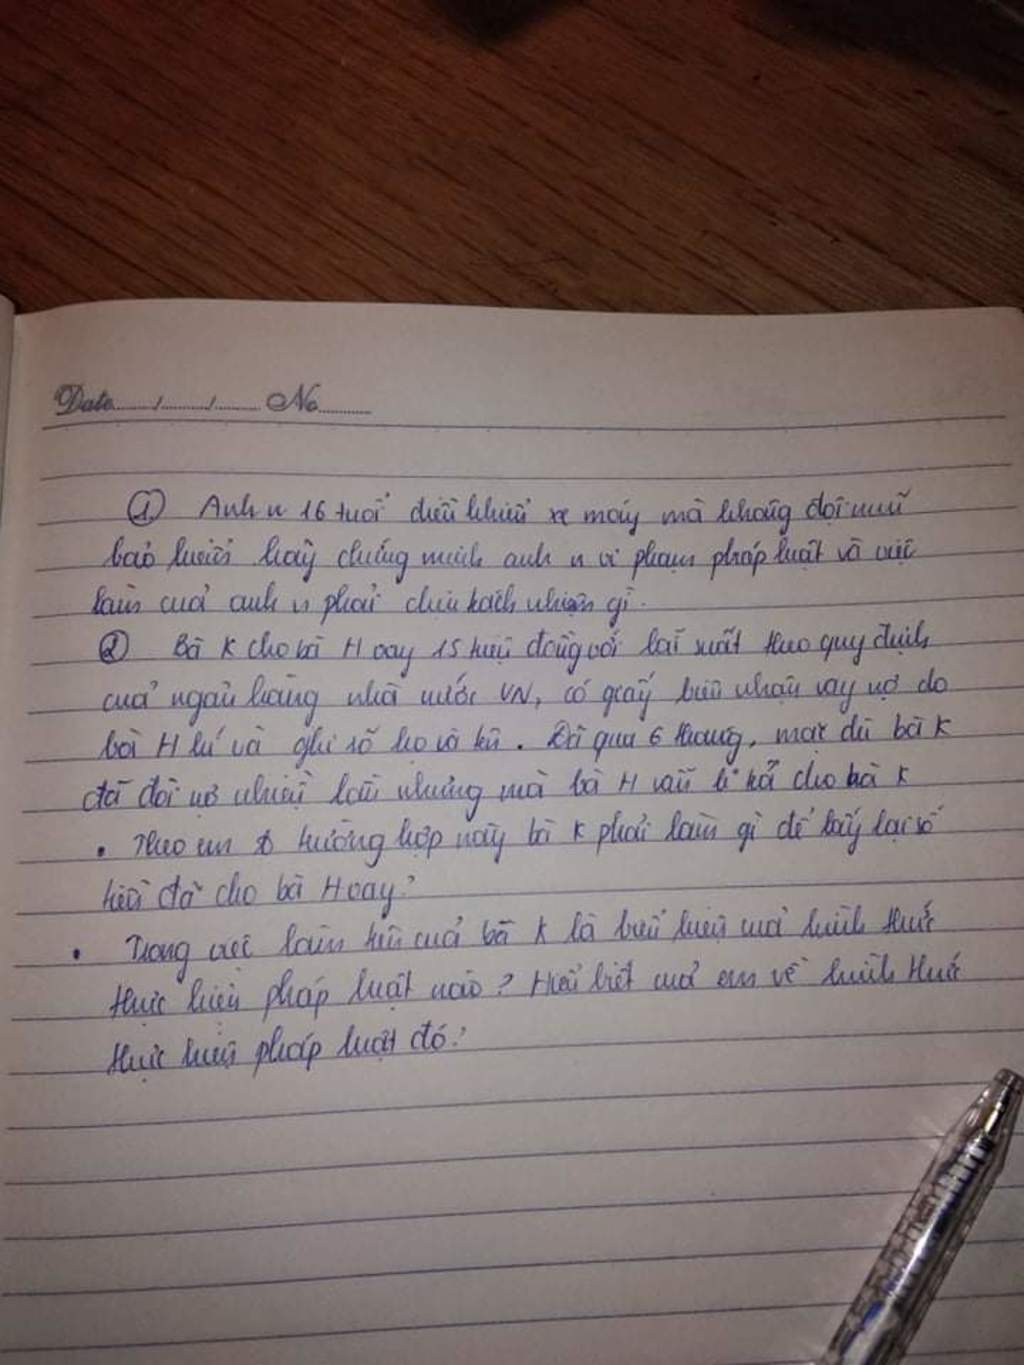 Date...../...../..... No.........
① Anh n 16 tuổi điều khiển xe máy mà không đội mũ
bảo hiểm hãy chứng minh anh n vi phạm pháp luật và việc
làm của anh n phải chịu trách nhiệm gì.
② Bà K cho bà H vay 15 triệu đồng với lãi suất theo quy định
của ngân hàng nhà nước VN, có giấy biên nhận vay nợ do
bà H kí và ghi rõ họ và tên. Đã qua 6 tháng, mặc dù bà K
đã đòi nợ nhiều lần nhưng mà bà H vẫn trả cho bà K
• Theo em trường hợp này bà K phải làm gì để lấy lại số
tiền đã cho bà H vay?
• Trong việc làm trên của bà K là biểu hiện của hình thức
thực hiện pháp luật nào? Hiểu biết của em về hình thức
thực hiện pháp luật đó?